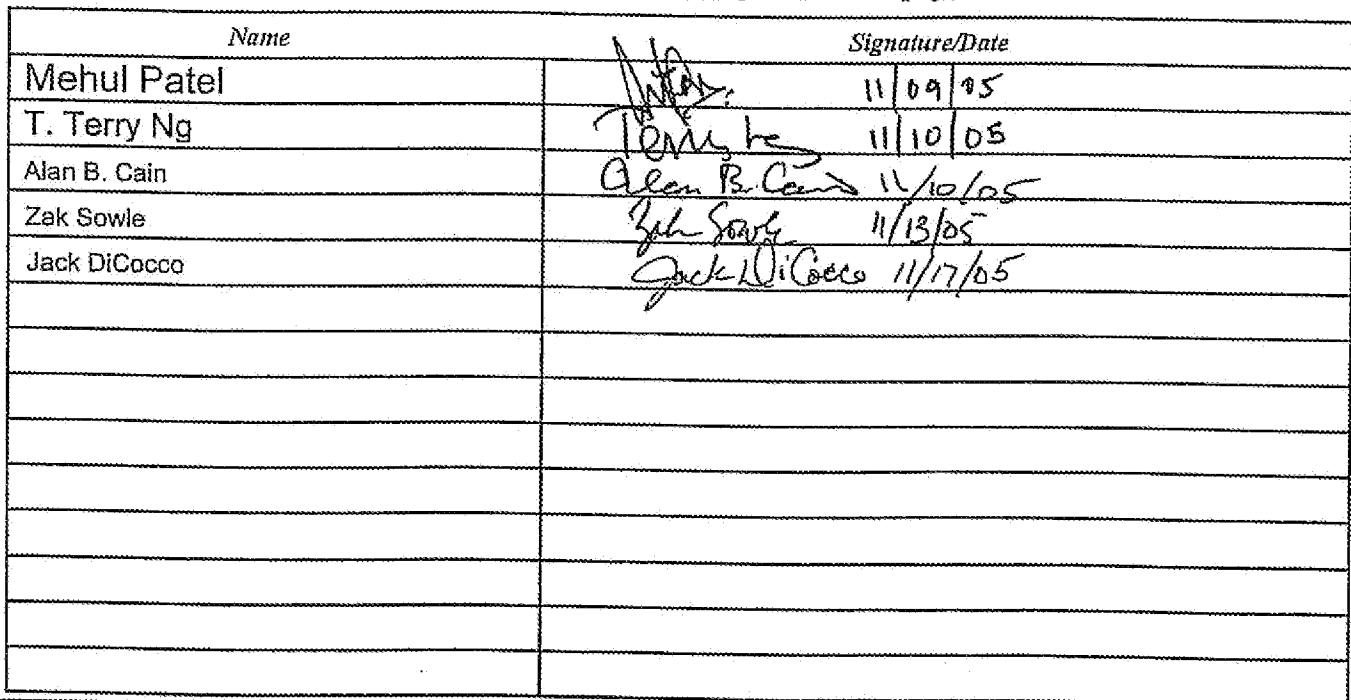 Name Signature/Date
Mehul Patel 11/09/05
T. Terry Ng Terry 11/10/05
Alan B. Cain Alan B. Cain 11/10/05
Zak Sowle Zak Sowle 11/13/05
Jack DiCocco Jack DiCocco 11/17/05